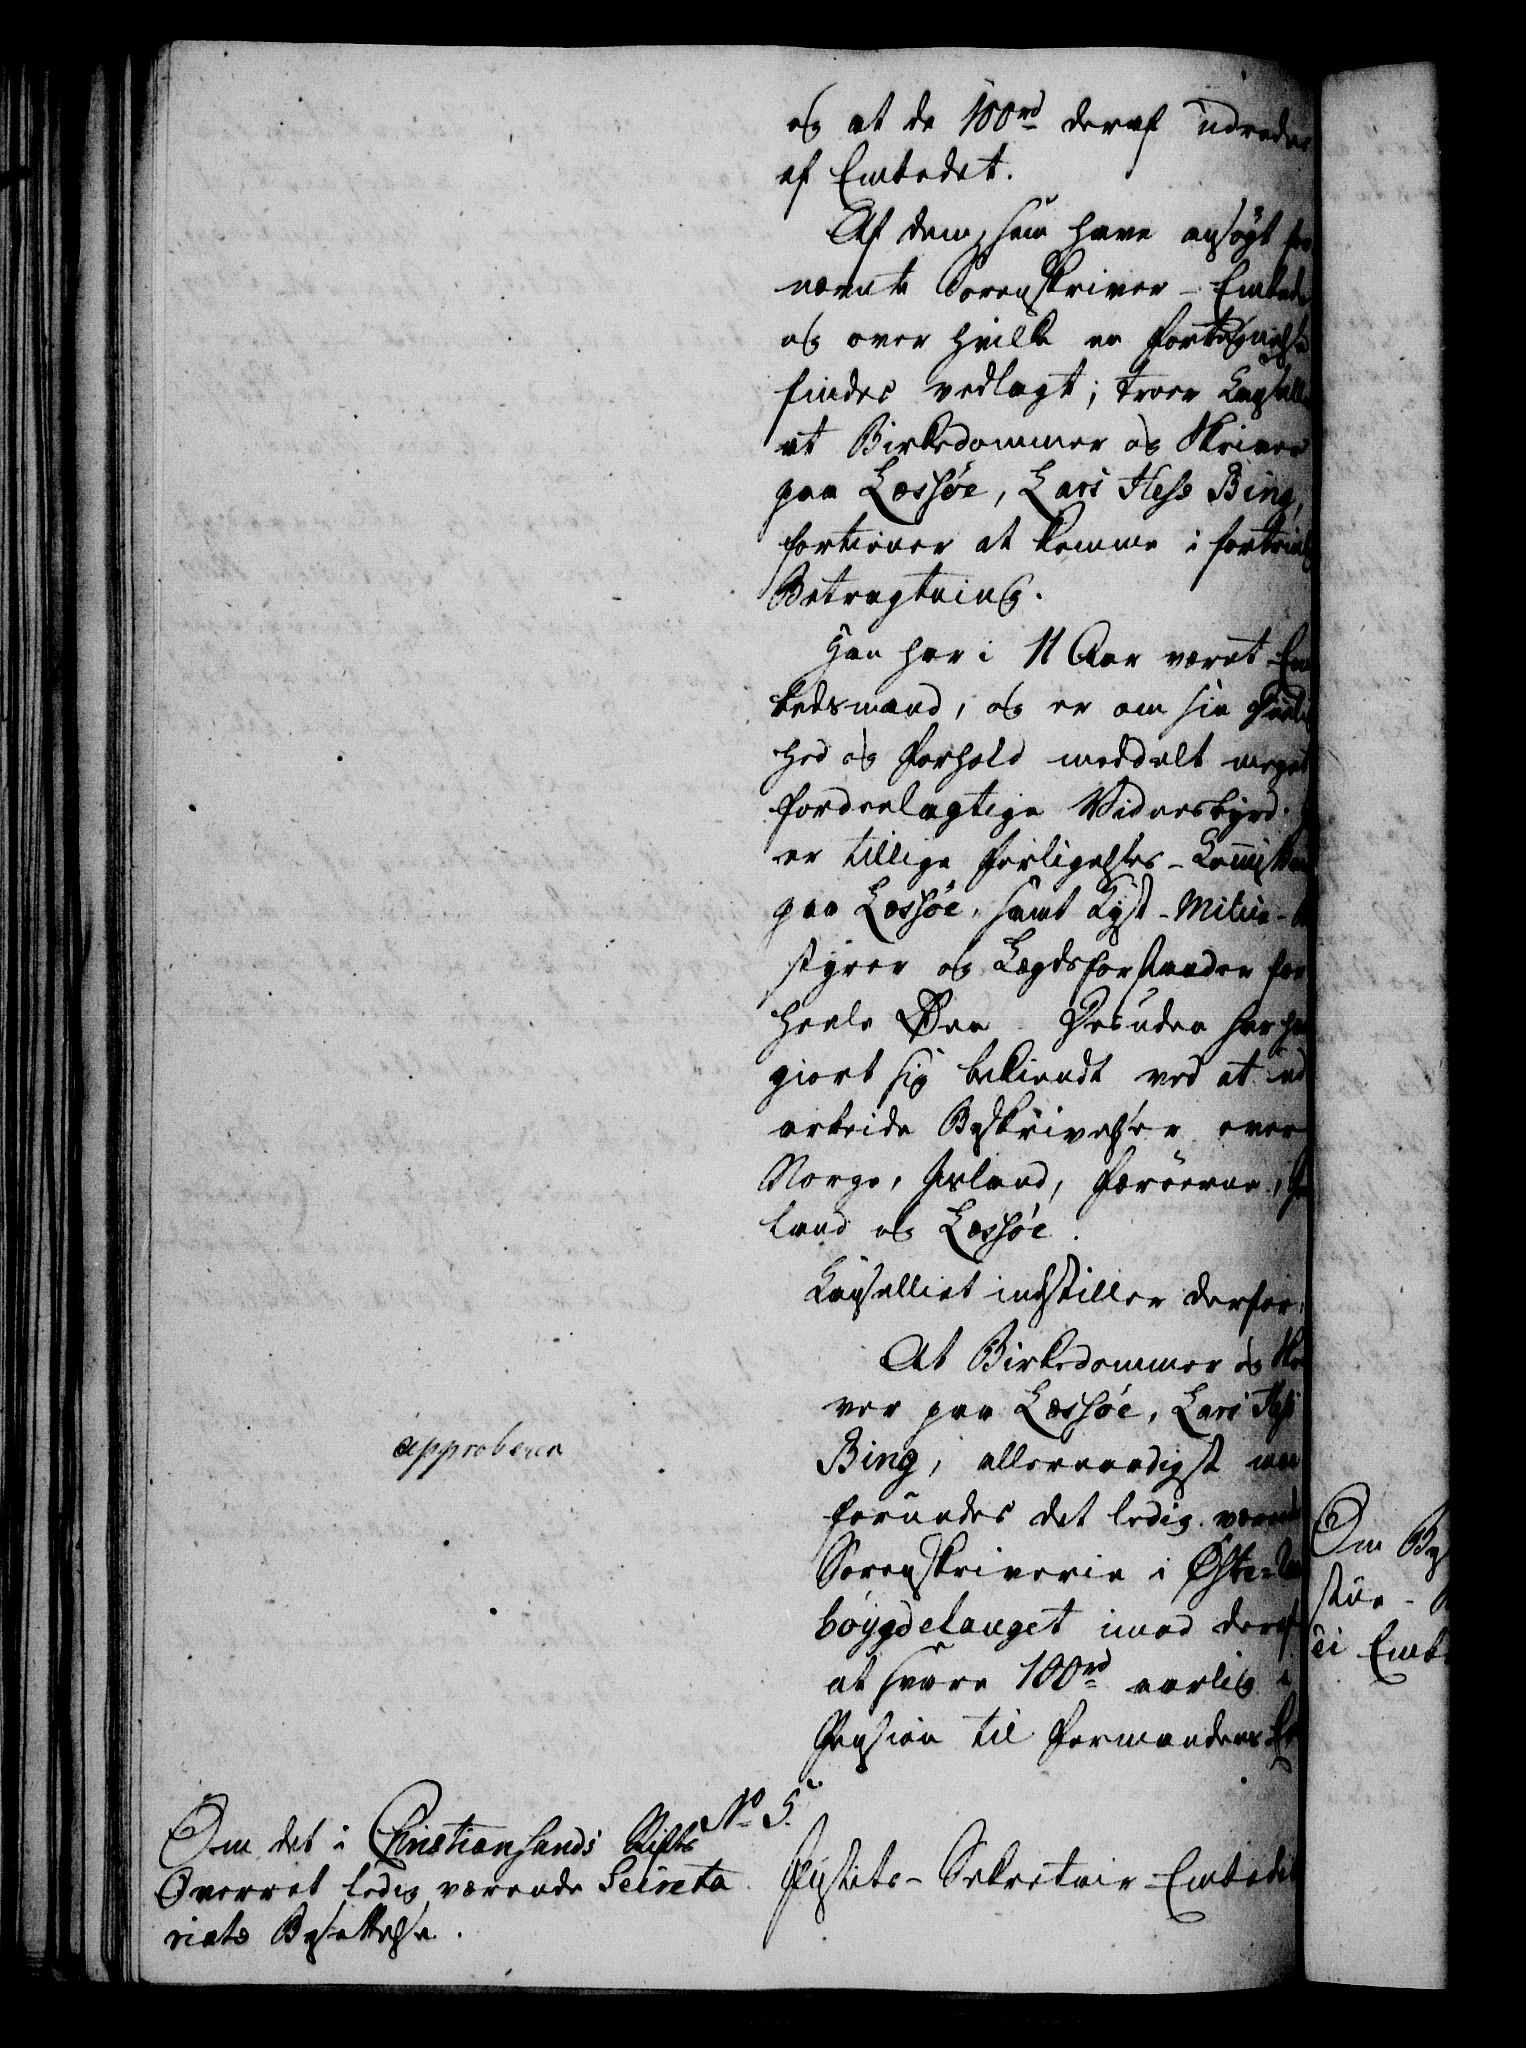 og at de 100 rd deraf udredes
af Embedet.
Af dem, som have ansøgt for
nævnte Sorenskriver-Embede
og over hvilke en Fortegnelse
findes vedlagt; troer Cancellie
at Birkedommer og Skriver
paa Læssøe, Lars Hess Bing,
fortiener at komme i fortrinlig
Betragtning.
Han har i 11 Aar været Em
bedsmand, og er om sin Duelig
hed og Forhold meddelt meget
fordeelagtige Vidnesbyrd.
er tillige Forligelses-Commissair
paa Læssøe, samt Kyst-Milice-
styrer og Lægdsforstander for
heele Øen. Desuden har han
giort sig bekiendt ved at ud
arbeide Beskrivelser over
Norge, Island, Færøerne,
land og Læssøe.
Cancelliet indstiller derfor:
At Birkedommer og Skri
ver paa Læssøe, Lars Hess
Bing, allernaadigst maa
forundes det ledig værende
Sorenskriverie i Øster-
bøygdelauget imod deraf
at svare 100 rd aarlig i
Pension til Formandens
approberes
No 5.
Om det i Christiansands Stifts
Overret ledig værende Secreta
riats Besættelse.
Justits-Sekretair-Embedet
Om Bes
stue-
ei Embe